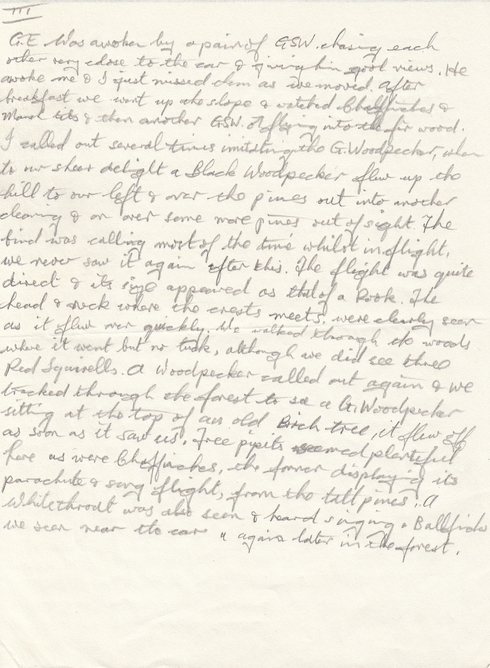 III
G.E. Was awoken by a pair of GSW. chasing each
other very close to the car & giving him good views. He
awoke me & I just missed them as we moved. After
breakfast we went up the slope & watched Chaffinches &
Marsh tits & then another GSW. flying into the fir wood.
I called out several times imitating the G. Woodpecker, when
to our sheer delight a Black Woodpecker flew up the
hill to our left & over the pines out into another
clearing & on over some more pines out of sight. The
bird was calling most of the time whilst in flight,
we never saw it again after this. The flight was quite
direct & its size appeared as that of a Rook. The
head & neck where the crests meets, were clearly seen
as it flew over quickly. We walked through the woods
where it went but no luck, although we did see three
Red Squirrells. A Woodpecker called out again & we
tracked through the forest to see a G. Woodpecker
sitting at the top of an old Birch tree, it flew off
as soon as it saw us, Tree pipits seemed plentiful
here as were Chaffinches, the former displaying its
parachute & song flight, from the tall pines. A
Whitethroat was also seen & heard singing & Bullfinch
we seen near the car & again later in the forest.